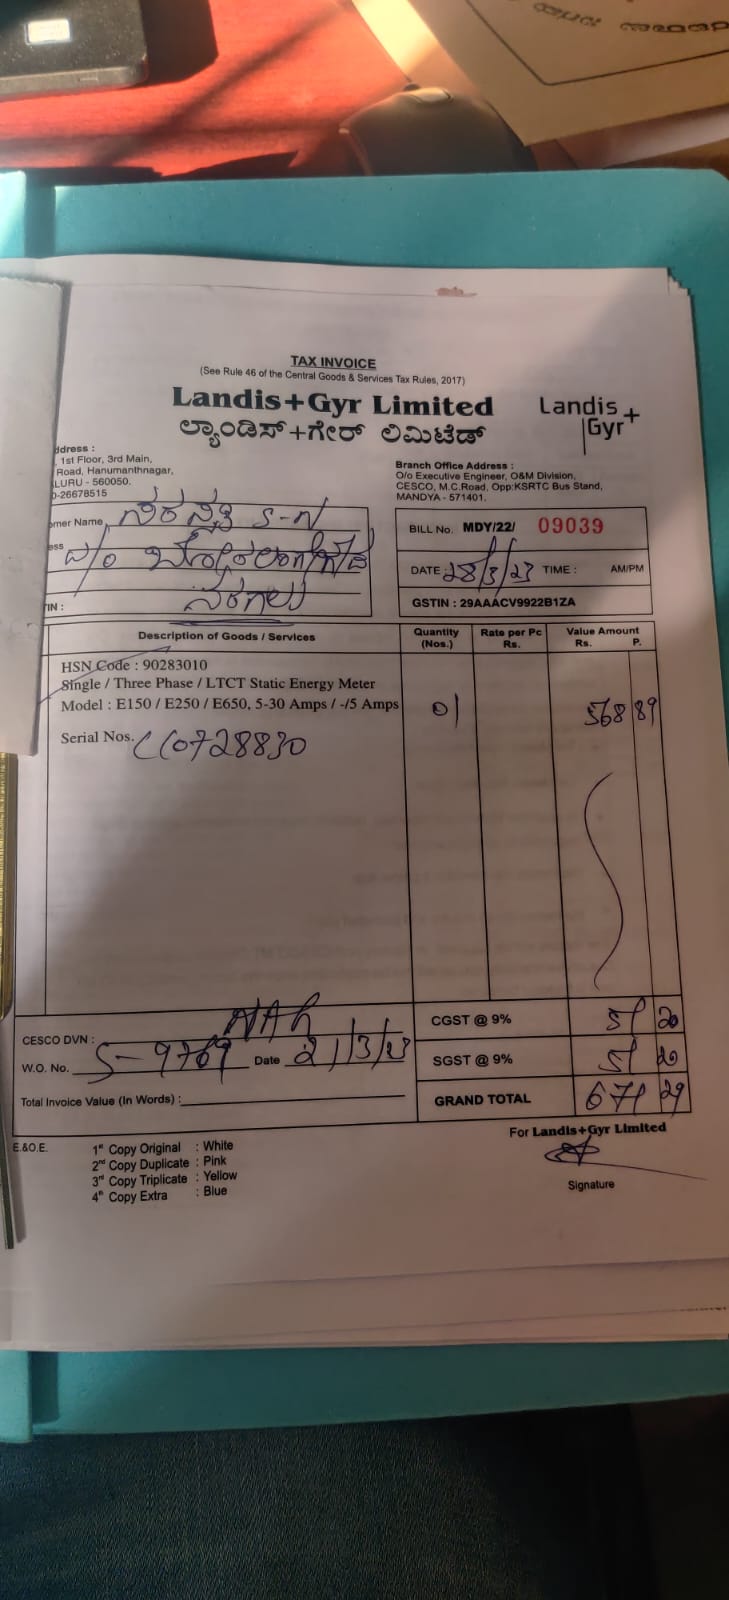 TAX INVOICE
(See Rule 46 of the Central Goods & Services Tax Rules, 2017)
Landis+Gyr Limited
ಲ್ಯಾಂಡಿಸ್+ಗೇರ್ ಲಿಮಿಟೆಡ್
Landis+
Gyr
ddress :
1st Floor, 3rd Main,
Road, Hanumanthnagar,
LURU - 560050.
0-26678515
Branch Office Address :
O/o Executive Engineer, O&M Division,
CESCO, M.C.Road, Opp:KSRTC Bus Stand,
MANDYA - 571401.
omer Name ಸರಸ್ವತಿ S-N
ess
TIN :
BILL No. MDY/22/ 09039
DATE : 28/3/23 TIME : AM/PM
GSTIN : 29AAACV9922B1ZA
Description of Goods / Services Quantity (Nos.) Rate per Pc Rs. Value Amount Rs. P.
HSN Code : 90283010
Single / Three Phase / LTCT Static Energy Meter
Model : E150 / E250 / E650, 5-30 Amps / -/5 Amps 01 568 89
Serial Nos. CC0728830
CESCO DVN :
W.O. No. S-9769 Date 21/3/23
Total Invoice Value (In Words) :
CGST @ 9% 51 20
SGST @ 9% 51 20
GRAND TOTAL 671 29
E.&O.E.
1st Copy Original : White
2nd Copy Duplicate : Pink
3rd Copy Triplicate : Yellow
4th Copy Extra : Blue
For Landis+Gyr Limited
Signature